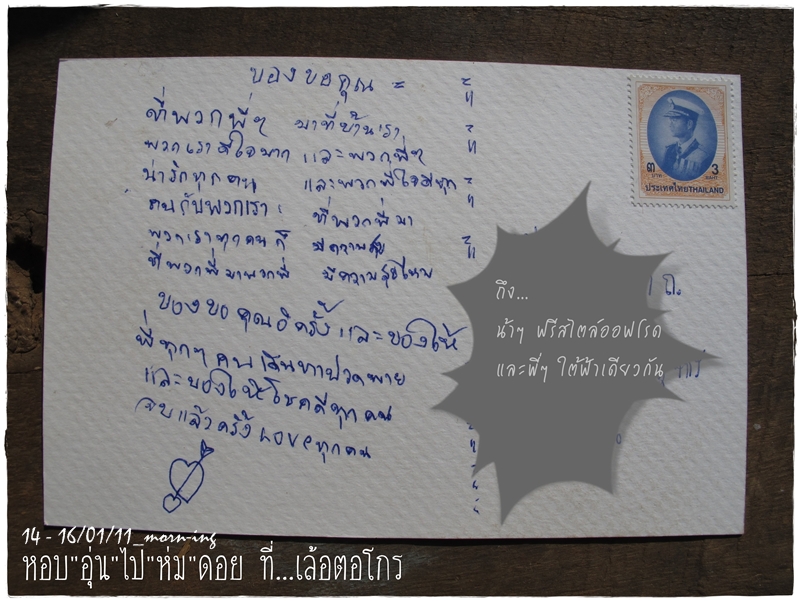 ของขอคุณ
ที่พวกพี่ๆ มาที่บ้านเรา
พวกเราดีใจมาก และพวกพี่ๆ
น่ารักทุกคน และพวกพี่ใจดีทุก
คนกับพวกเรา ที่พวกพี่มา
พวกเราทุกคนก็ มีความสุข
ที่พวกพี่มาพวกพี่ มีความสุขไหม
ของขอคุณอีครั้ง และของให้
พี่ทุกๆ คนเดินทาปวดพาย
และของให้โชคดีทุกคน
จบแล้วครั้ง Love ทุกคน
๓ 3
บาท BAHT
ประเทศไทย THAILAND
ถ.
ถึง...
น้าๆ ฟรีสไตล์ออฟโรด
และพี่ๆ ใต้ฟ้าเดียวกัน
14 - 16/01/11_morn-ing
หอบ"อุ่น"ไป"ห่ม"ดอย ที่...เล้อตอโกร